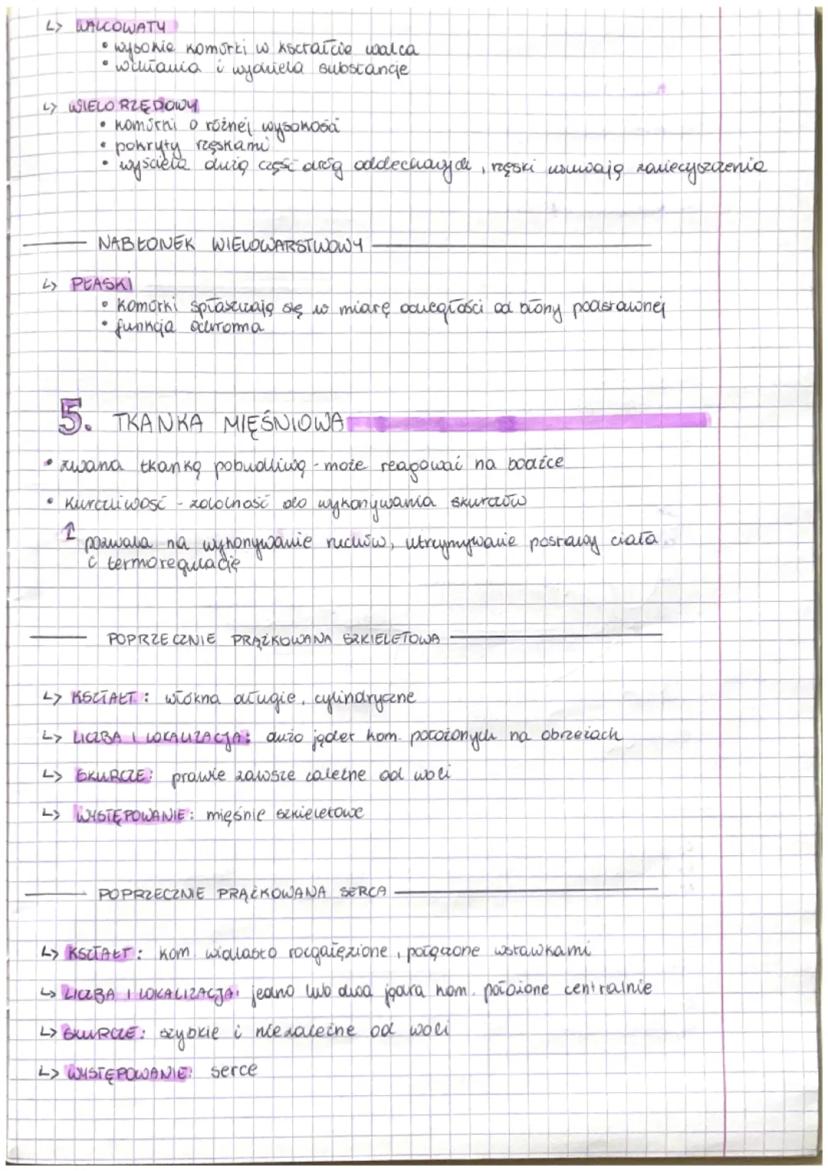 ↳ WALCOWATY
• wysokie komórki w kształcie walca
• wchłania i wydziela substancje
↳ WIELORZĘDOWY
• komórki o różnej wysokości
• pokryty rzęskami
• wyściela dużą część dróg oddechowych, rzęski usuwają zanieczyszczenia
NABŁONEK WIELOWARSTWOWY
↳ PŁASKI
• komórki spłaszczają się w miarę odległości od błony podstawnej
• funkcja ochronna
5. TKANKA MIĘŚNIOWA
• zwana tkanką pobudliwą - może reagować na bodźce
• kurczliwość - zdolność do wykonywania skurczów
↑ pozwala na wykonywanie ruchów, utrzymywanie postawy ciała
i termoregulację
POPRZECZNIE PRĄŻKOWANA SZKIELETOWA
↳ KSZTAŁT: włókna długie, cylindryczne
↳ LICZBA I LOKALIZACJA: dużo jąder kom. położonych na obrzeżach
↳ SKURCZE: prawie zawsze zależne od woli
↳ WYSTĘPOWANIE: mięśnie szkieletowe
POPRZECZNIE PRĄŻKOWANA SERCA
↳ KSZTAŁT: kom. widlasto rozgałęzione, połączone wstawkami
↳ LICZBA I LOKALIZACJA: jedno lub dwa jądra kom. położone centralnie
↳ SKURCZE: szybkie i niezależne od woli
↳ WYSTĘPOWANIE: serce